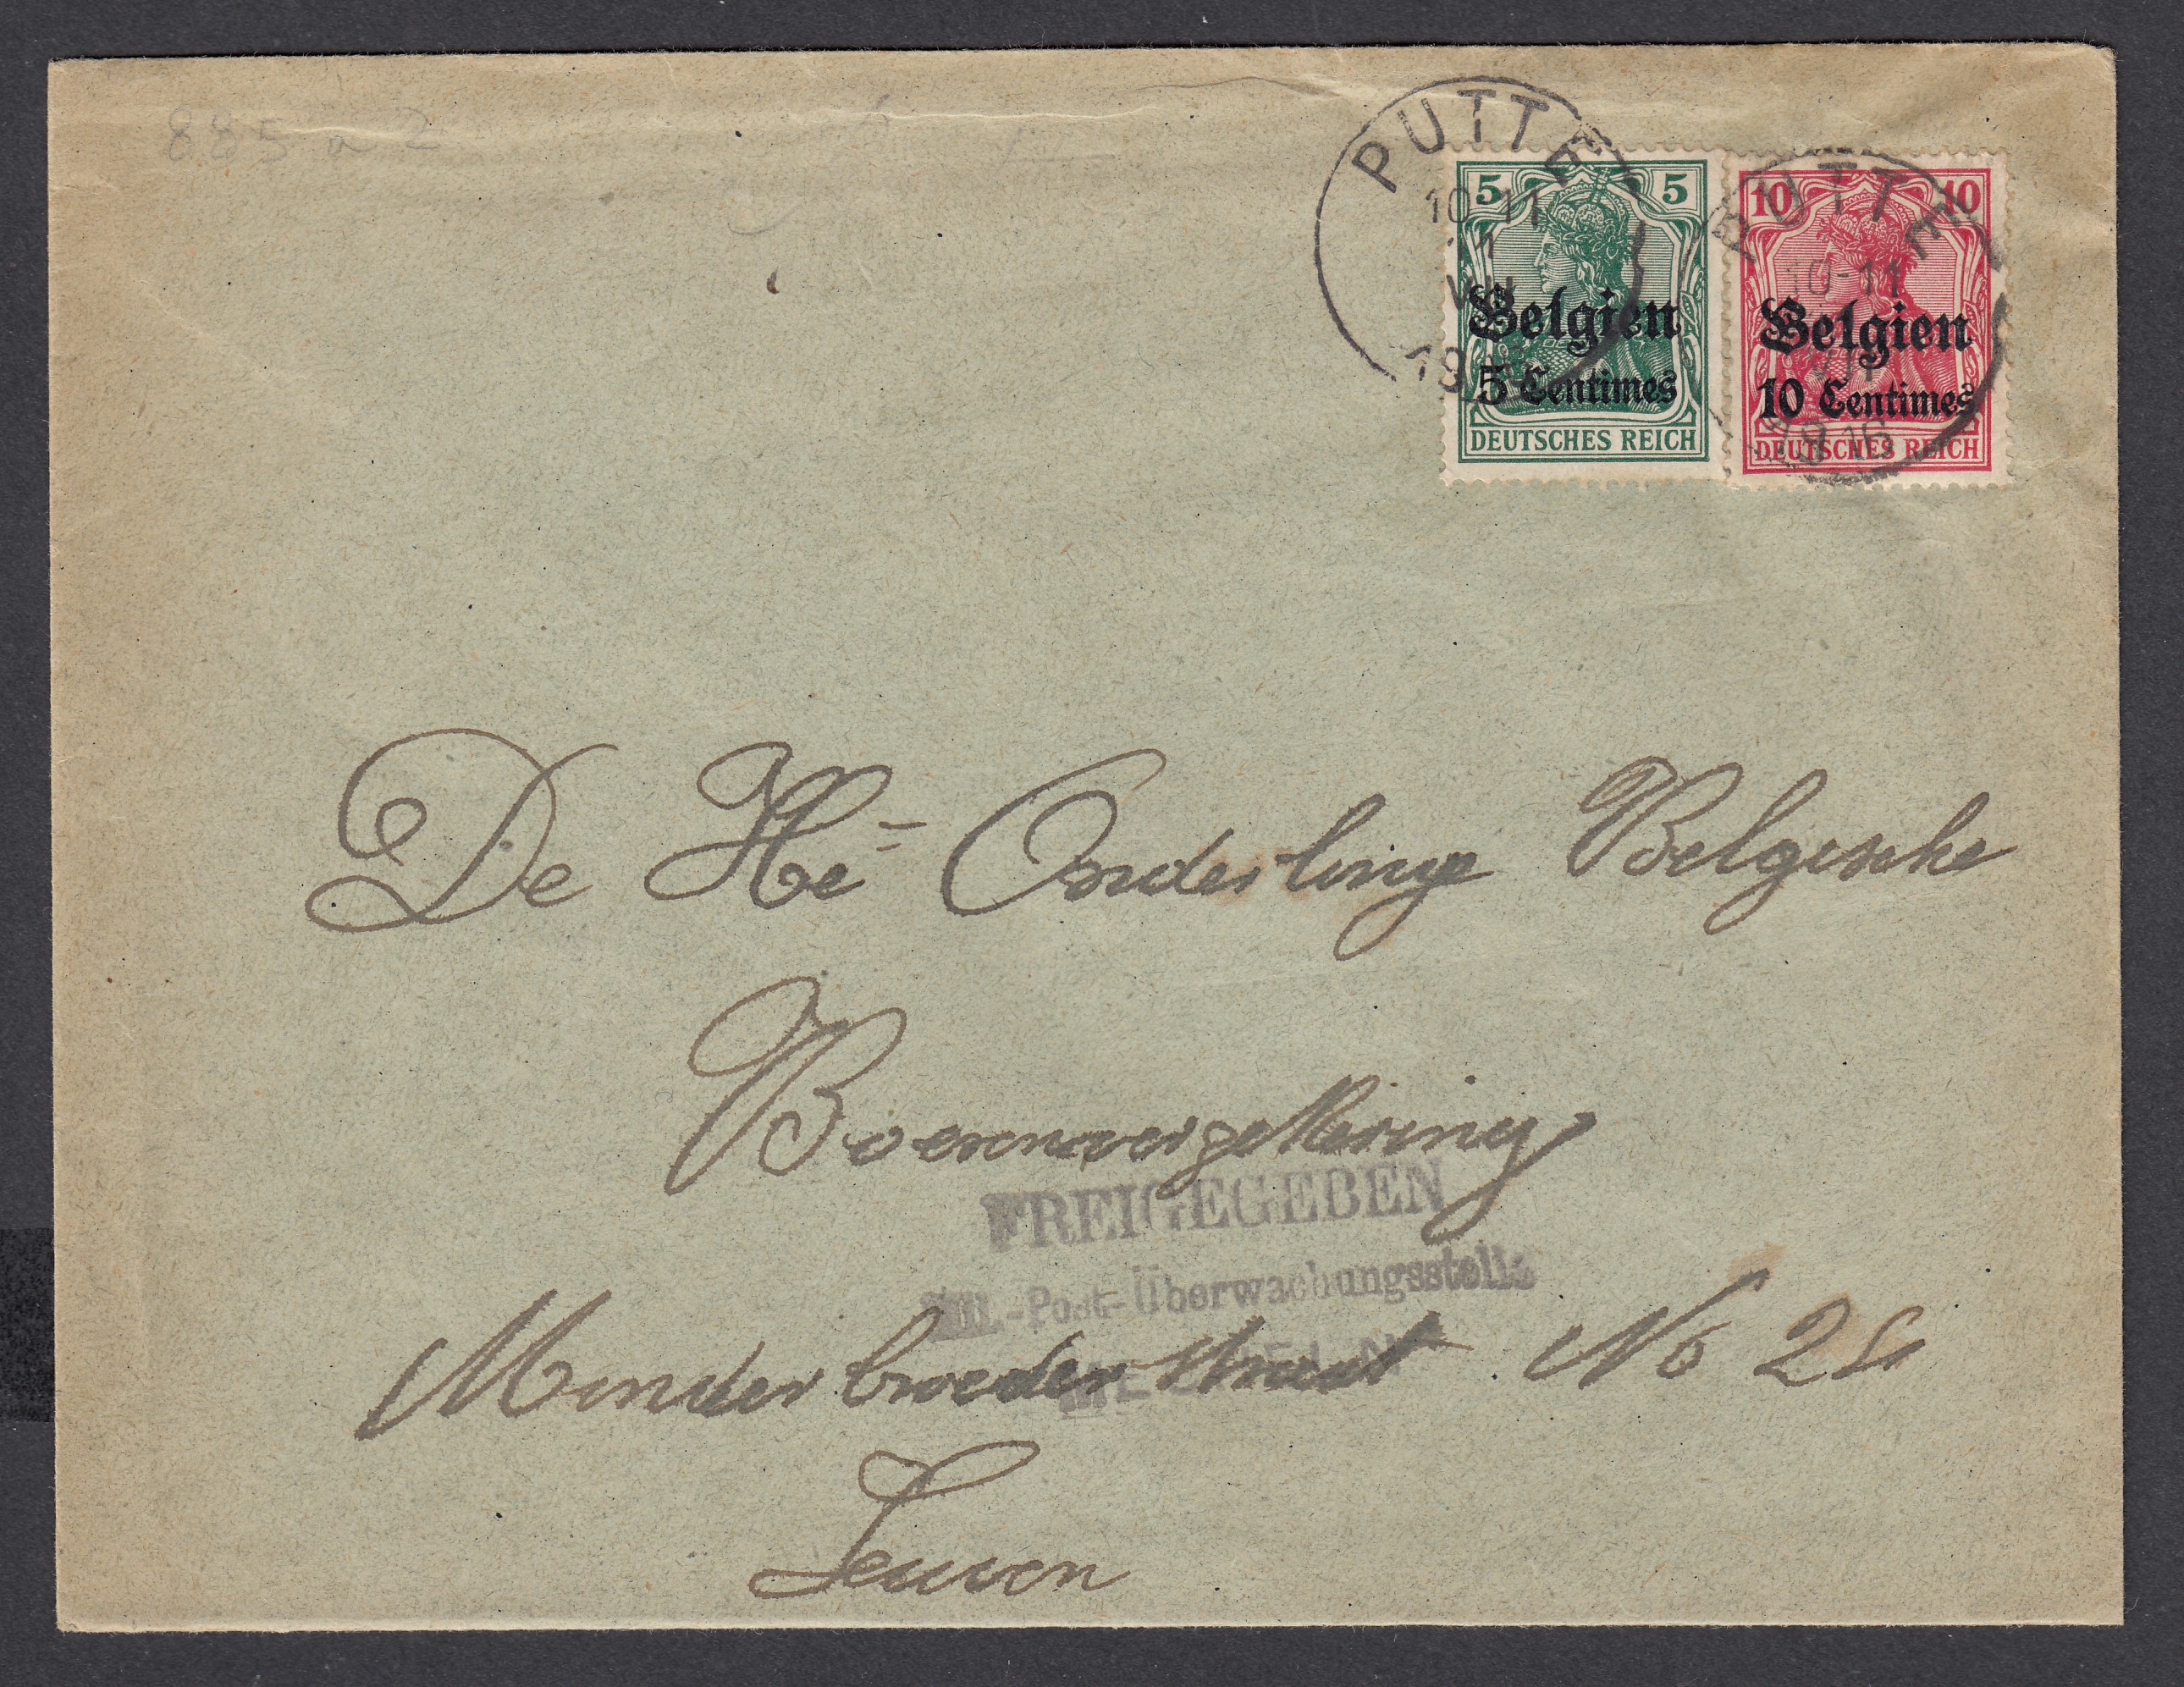 885 a 2
PUTTE
10-11
1
VII
19
5 5
Belgien
5 Centimes
DEUTSCHES REICH
PUTTE
10-11
VII
1916
10 10
Belgien
10 Centimes
DEUTSCHES REICH
De He= Onderlinge Belgische
Boerenverzekering
FREIGEGEBEN
MIL.-Post-Überwachungsstelle
Minderbroederstraat No
Leuven